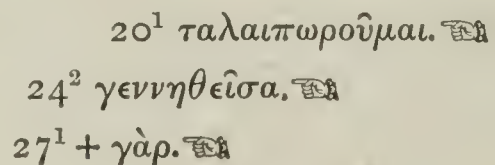 20¹ ταλαιπωροῦμαι.☜
24² γεννηθεῖσα.☜
27¹ + γὰρ.☜